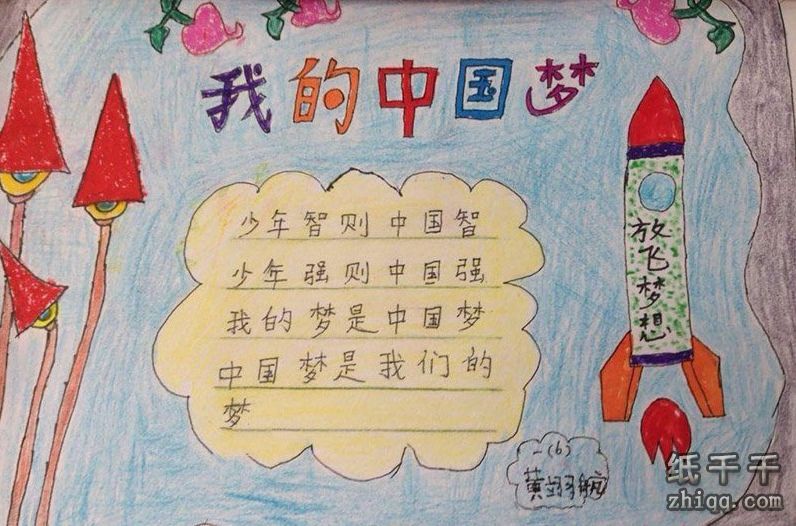 我的中国梦
少年智则中国智
少年强则中国强
我的梦是中国梦
中国梦是我们的
梦
放飞梦想
一(6)
黄翊航
纸千千
zhiqq.com